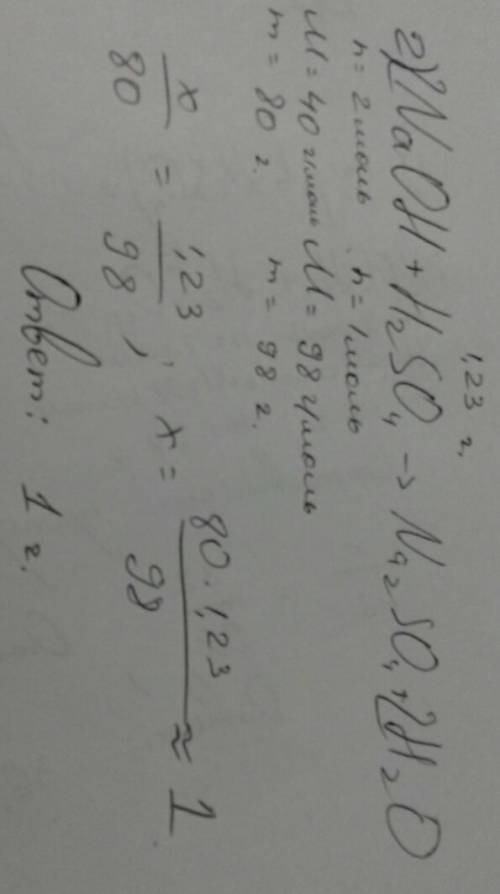 1,23 г.
2) 2NaOH + H₂SO₄ → Na₂SO₄ + 2H₂O
n = 2 моль n = 1 моль
M = 40 г/моль M = 98 г/моль
m = 80 г. m = 98 г.
x/80 = 1,23/98 ; x = 80 · 1,23/98 ≈ 1
Ответ: 1 г.